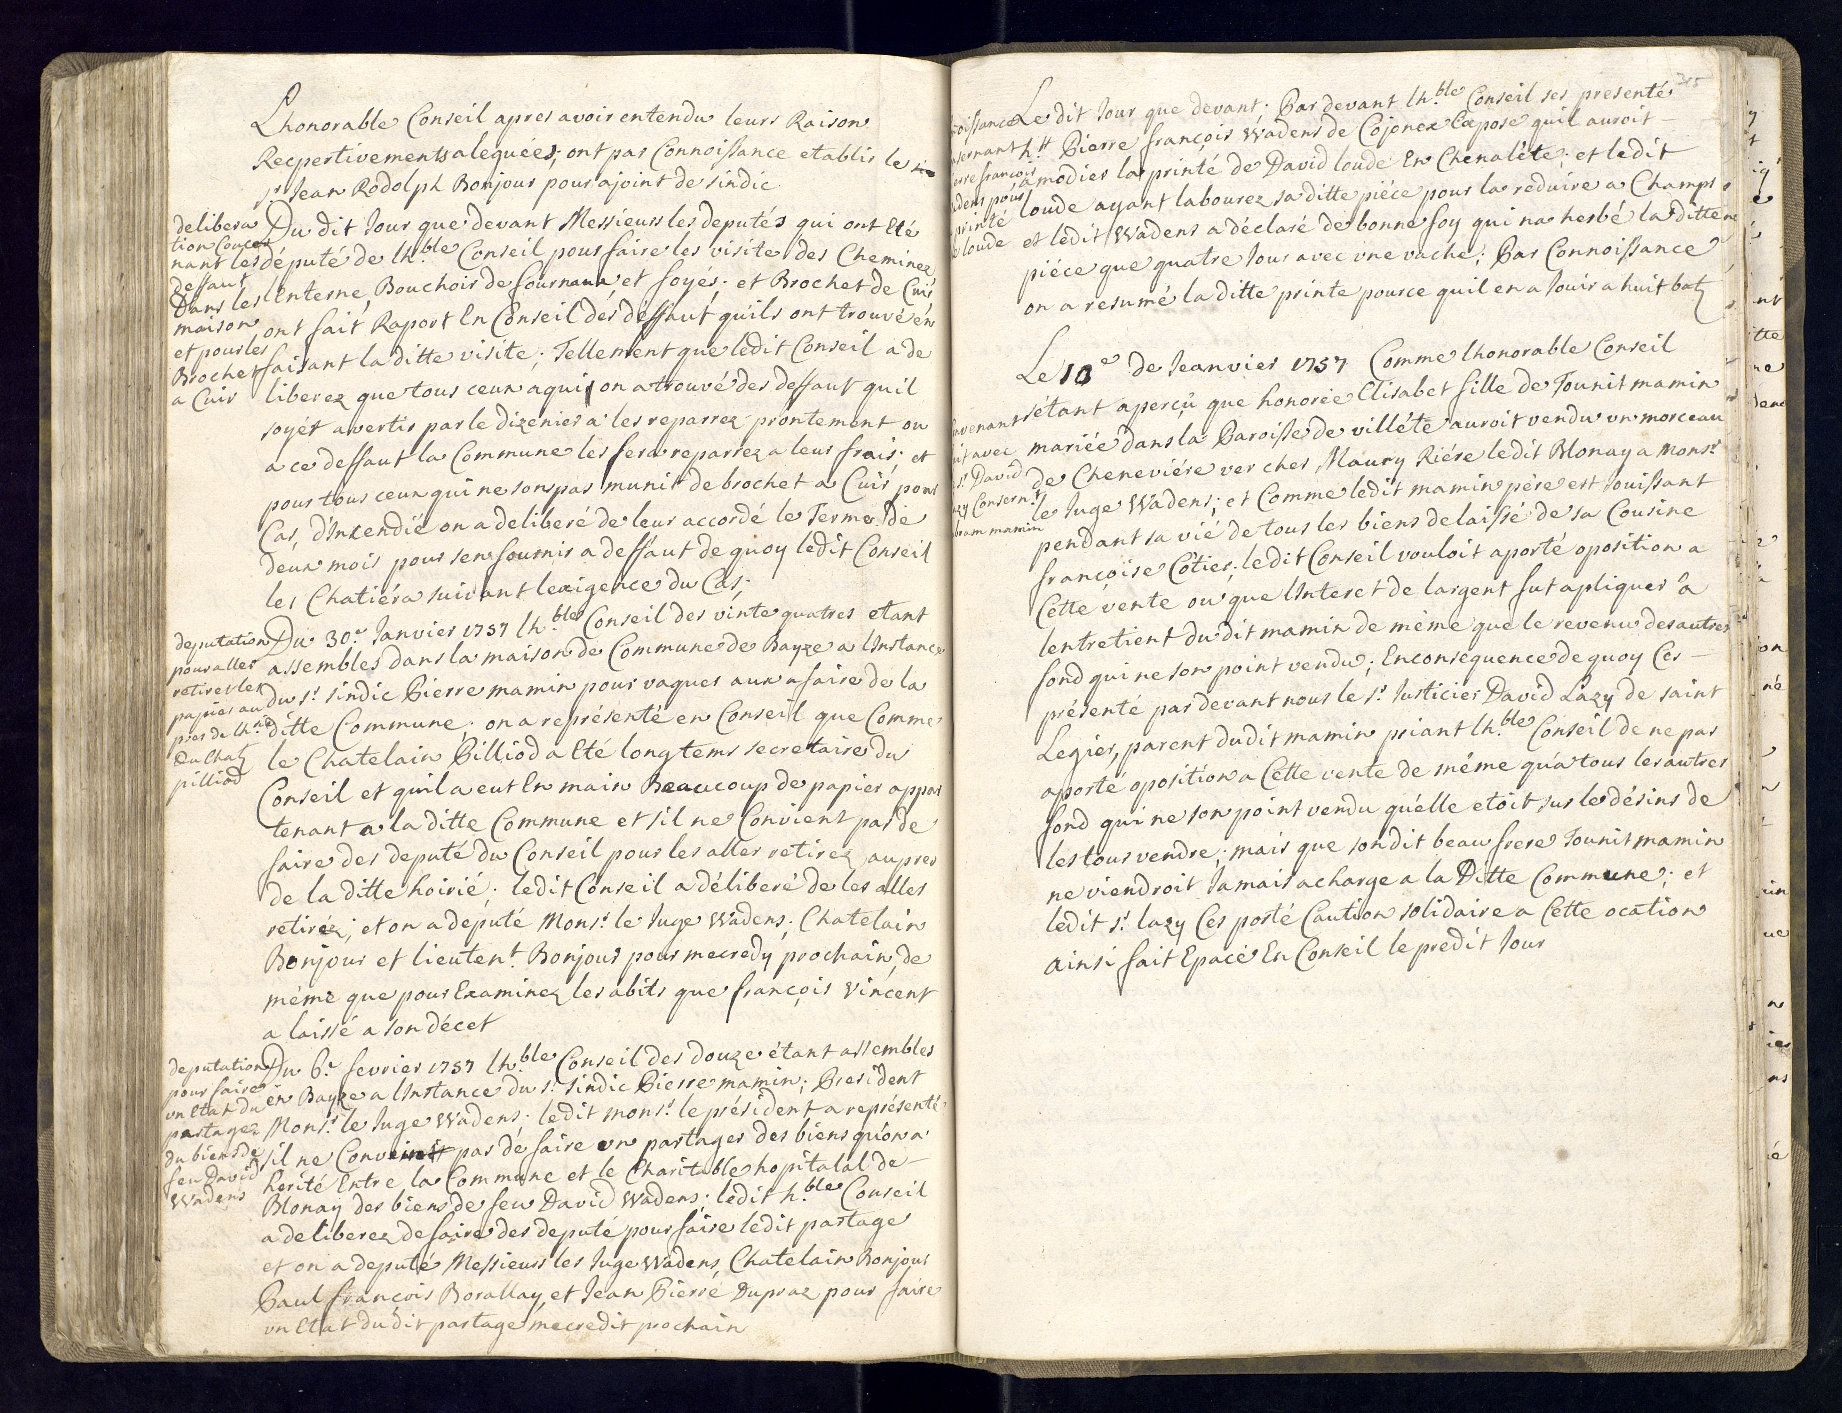 Lhonorable Conseil apres avoir entendu leurs Raison
Recpertivements aleguées; ont par Connoissance etablis le
sr. Jean Rodolph Bonjour pour ajoint de sindic
delibera
tion Concer
nant les
deffaut
Dans les
maison
et pour les
Brochet
a Cuir
Du dit Jour que devant Messieurs les deputés qui ont Eté
député de lh.ble Conseil pour faire les visite des Cheminez
Enterne, Bouchoir de fournaux et foyés; et Brochet de Cuir
ont fait Raport En Conseil dés déffaut quils ont trouvé én
faisant la ditte visite; Tellement que ledit Conseil a de
liberez que tous ceux a qui on a trouvé des deffaut quil
soyét avertis par le dizenier a les reparrez prontement ou
a ce deffaut la Commune les fera reparrez a leur frais; et
pour tous ceux qui ne son pas munir de brochet a Cuir pour
Cas, d'Incendie on a deliberé de leur accordé le Terme de
deux mois pour sen fournir a deffaut de quoy ledit Conseil
les Chatiéra suivant lexigence du Cas;
deputation
pour aller
retirer les
papier au
pres de lh.rie
du Chatz
pilliod
Du 30.e Janvier 1757 lh.ble Conseil des vinte quatres etant
assembles dans la maison de Commune de Bayze a lInstance
du sr. sindic Pierre mamin pour vaguer aux afaire de la
ditte Commune; on a représenté en Conseil que Comme
le Chatelain Pilliod a Eté longtems secretaire du
Conseil et quil a eut En main Beaucoup de papier appar
tenant a la ditte Commune et sil ne Convient pas de
faire des deputé du Conseil pour les aller retirez aupres
de la ditte hoirié; ledit Conseil a déliberé de les aller
retiréz; et on a deputé Monsr. le Juge Wadens; Chatelain
Bonjour et lieutent. Bonjour pour mecredy prochain, de
méme que pour Examinez les abits que françois Vincent
a laissé a son décet
deputation
pour faire
un Etat du
partagez
du biens de
feu David
Wadens
Du 6.e fevrier 1757 lh.ble Conseil des douze étant assembles
en Bayze a lInstance du sr. sindic Pierre mamin; President
Monsr. le Juge Wadens; ledit monsr. le président a représenté
sil ne Convient pas de faire un partages des biens qu'on a
herité Entre la Commune et le Charitable hopitalal de
Blonay des biens de feu David Wadens; ledit h.ble Conseil
a deliberez de faire des deputé pour faire ledit partage
et on a deputé Messieurs les Juge Wadens, Chatelain Bonjour
Paul françois Borallay, et Jean Pierre Dupraz pour faire
un Etat du dit partage mecredit prochain
315
oissance
ernant
erre françois
dens pour
printé
loude
Le dit Jour que devant; Par devant lh.ble Conseil ses presenté
h.tt Pierre françois Wadens de Cojonex Expose quil auroit
amodier la printé de David loude En Chenaléte; et ledit
loude ayant labourez sa ditte piéce pour la reduire a Champs
et ledit Wadens a déclaré de bonne foy qui na herbé la ditte
piéce que quatre Jour avec une vache; Par Connoissance
on a resumé la ditte printe pource quil en a Jouir a huit batz
Le 10.e de Jeanvier 1757 Comme lhonorable Conseil
venant
it avec
sr. David
zy Consern.t
bram mamin
sétant aperçû que honorée Elisabet fille de Tounit mamin
mariée dans la Paroisse de villéte auroit vendu un morceau
de Cheneviére ver cher Maury Riére ledit Blonay a Monsr.
le Juge Wadens; et Comme ledit mamin pére est Jouissant
pendant sa vié de tous les biens delaissé de sa Cousine
françoise Côtier; ledit Conseil vouloit aporté oposition a
Cette vente ou que lInteret de largent fut apliquer à
lentretient du dit mamin de méme que le revenu des autres
fond qui ne son point vendu; Enconséquence de quoy Ces
présenté par devant nous le sr. Justicier David Lazy de saint
Legier, parent du dit mamin priant lh.ble Conseil de ne pas
aporté oposition a Cette vente de méme qu'a tous les autres
fond qui ne son point vendu qu'elle etoit sur le désins de
les tous vendre; mais que son dit beau frere Tounit mamin
ne viendroit Jamais a charge a la Ditte Commune; et
ledit sr. lazy Ces porté Caution solidaire a Cette ocation
ainsi fait Epacé En Conseil le predit Jour